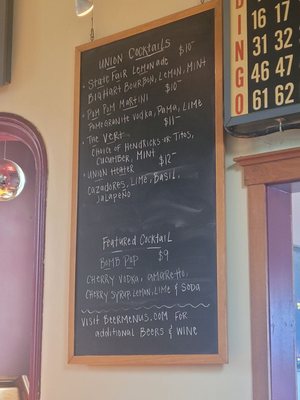 UNION COCKTAILS
• STATE FAIR LEMONADE $10
BIG HART BOURBON, LEMON, MINT
• POM POM MARTINI $10
POMEGRANATE VODKA, PAMA, LIME
• THE VERT $11
CHOICE OF HENDRICKS OR TITOS,
CUCUMBER, MINT
• UNION HEATER $12
CAZADORES, LIME, BASIL,
JALAPEÑO
FEATURED COCKTAIL
BOMB POP $9
CHERRY VODKA, AMARETTO,
CHERRY SYRUP, LEMON, LIME & SODA
VISIT BEERMENUS.COM FOR
ADDITIONAL BEERS & WINE
BINGO
16 17
31 32
46 47
61 62